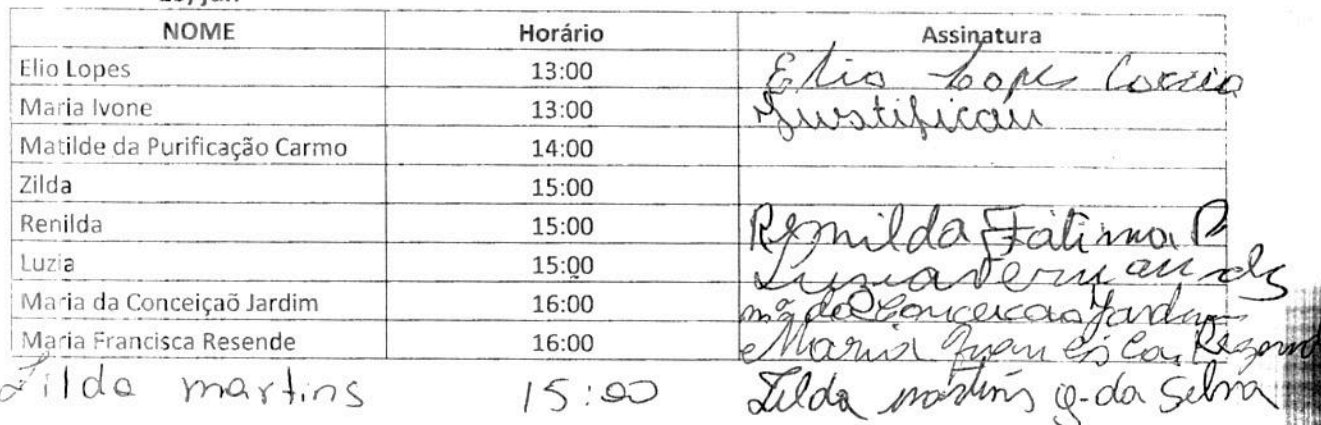 NOME Horário Assinatura
Elio Lopes 13:00 Elio Lopes Correia
Maria Ivone 13:00 Justificou
Matilde da Purificação Carmo 14:00
Zilda 15:00
Renilda 15:00 Renilda Fátima
Luzia 15:00 Luzia
Maria da Conceiçaõ Jardim 16:00 Mª da Conceicao Jardim
Maria Francisca Resende 16:00 Maria Francisca
Zilda martins 15:00 Zilda martins da Selva